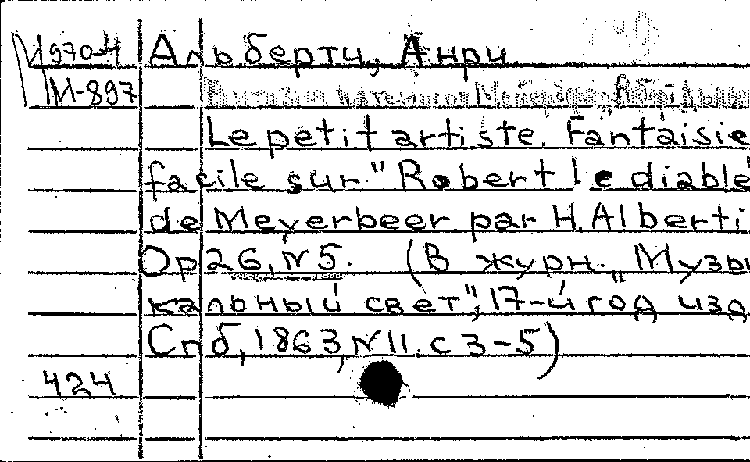 М970-4 Альберти, Анри
М-897
Le petit artiste. Fantaisie
facile sur "Robert le diable
de Meyerbeer par H. Alberti.
Op 26, N5. (В журн. „Музы
кальный свет", 17-й год изд
Спб, 1863, N11. с 3-5)
424